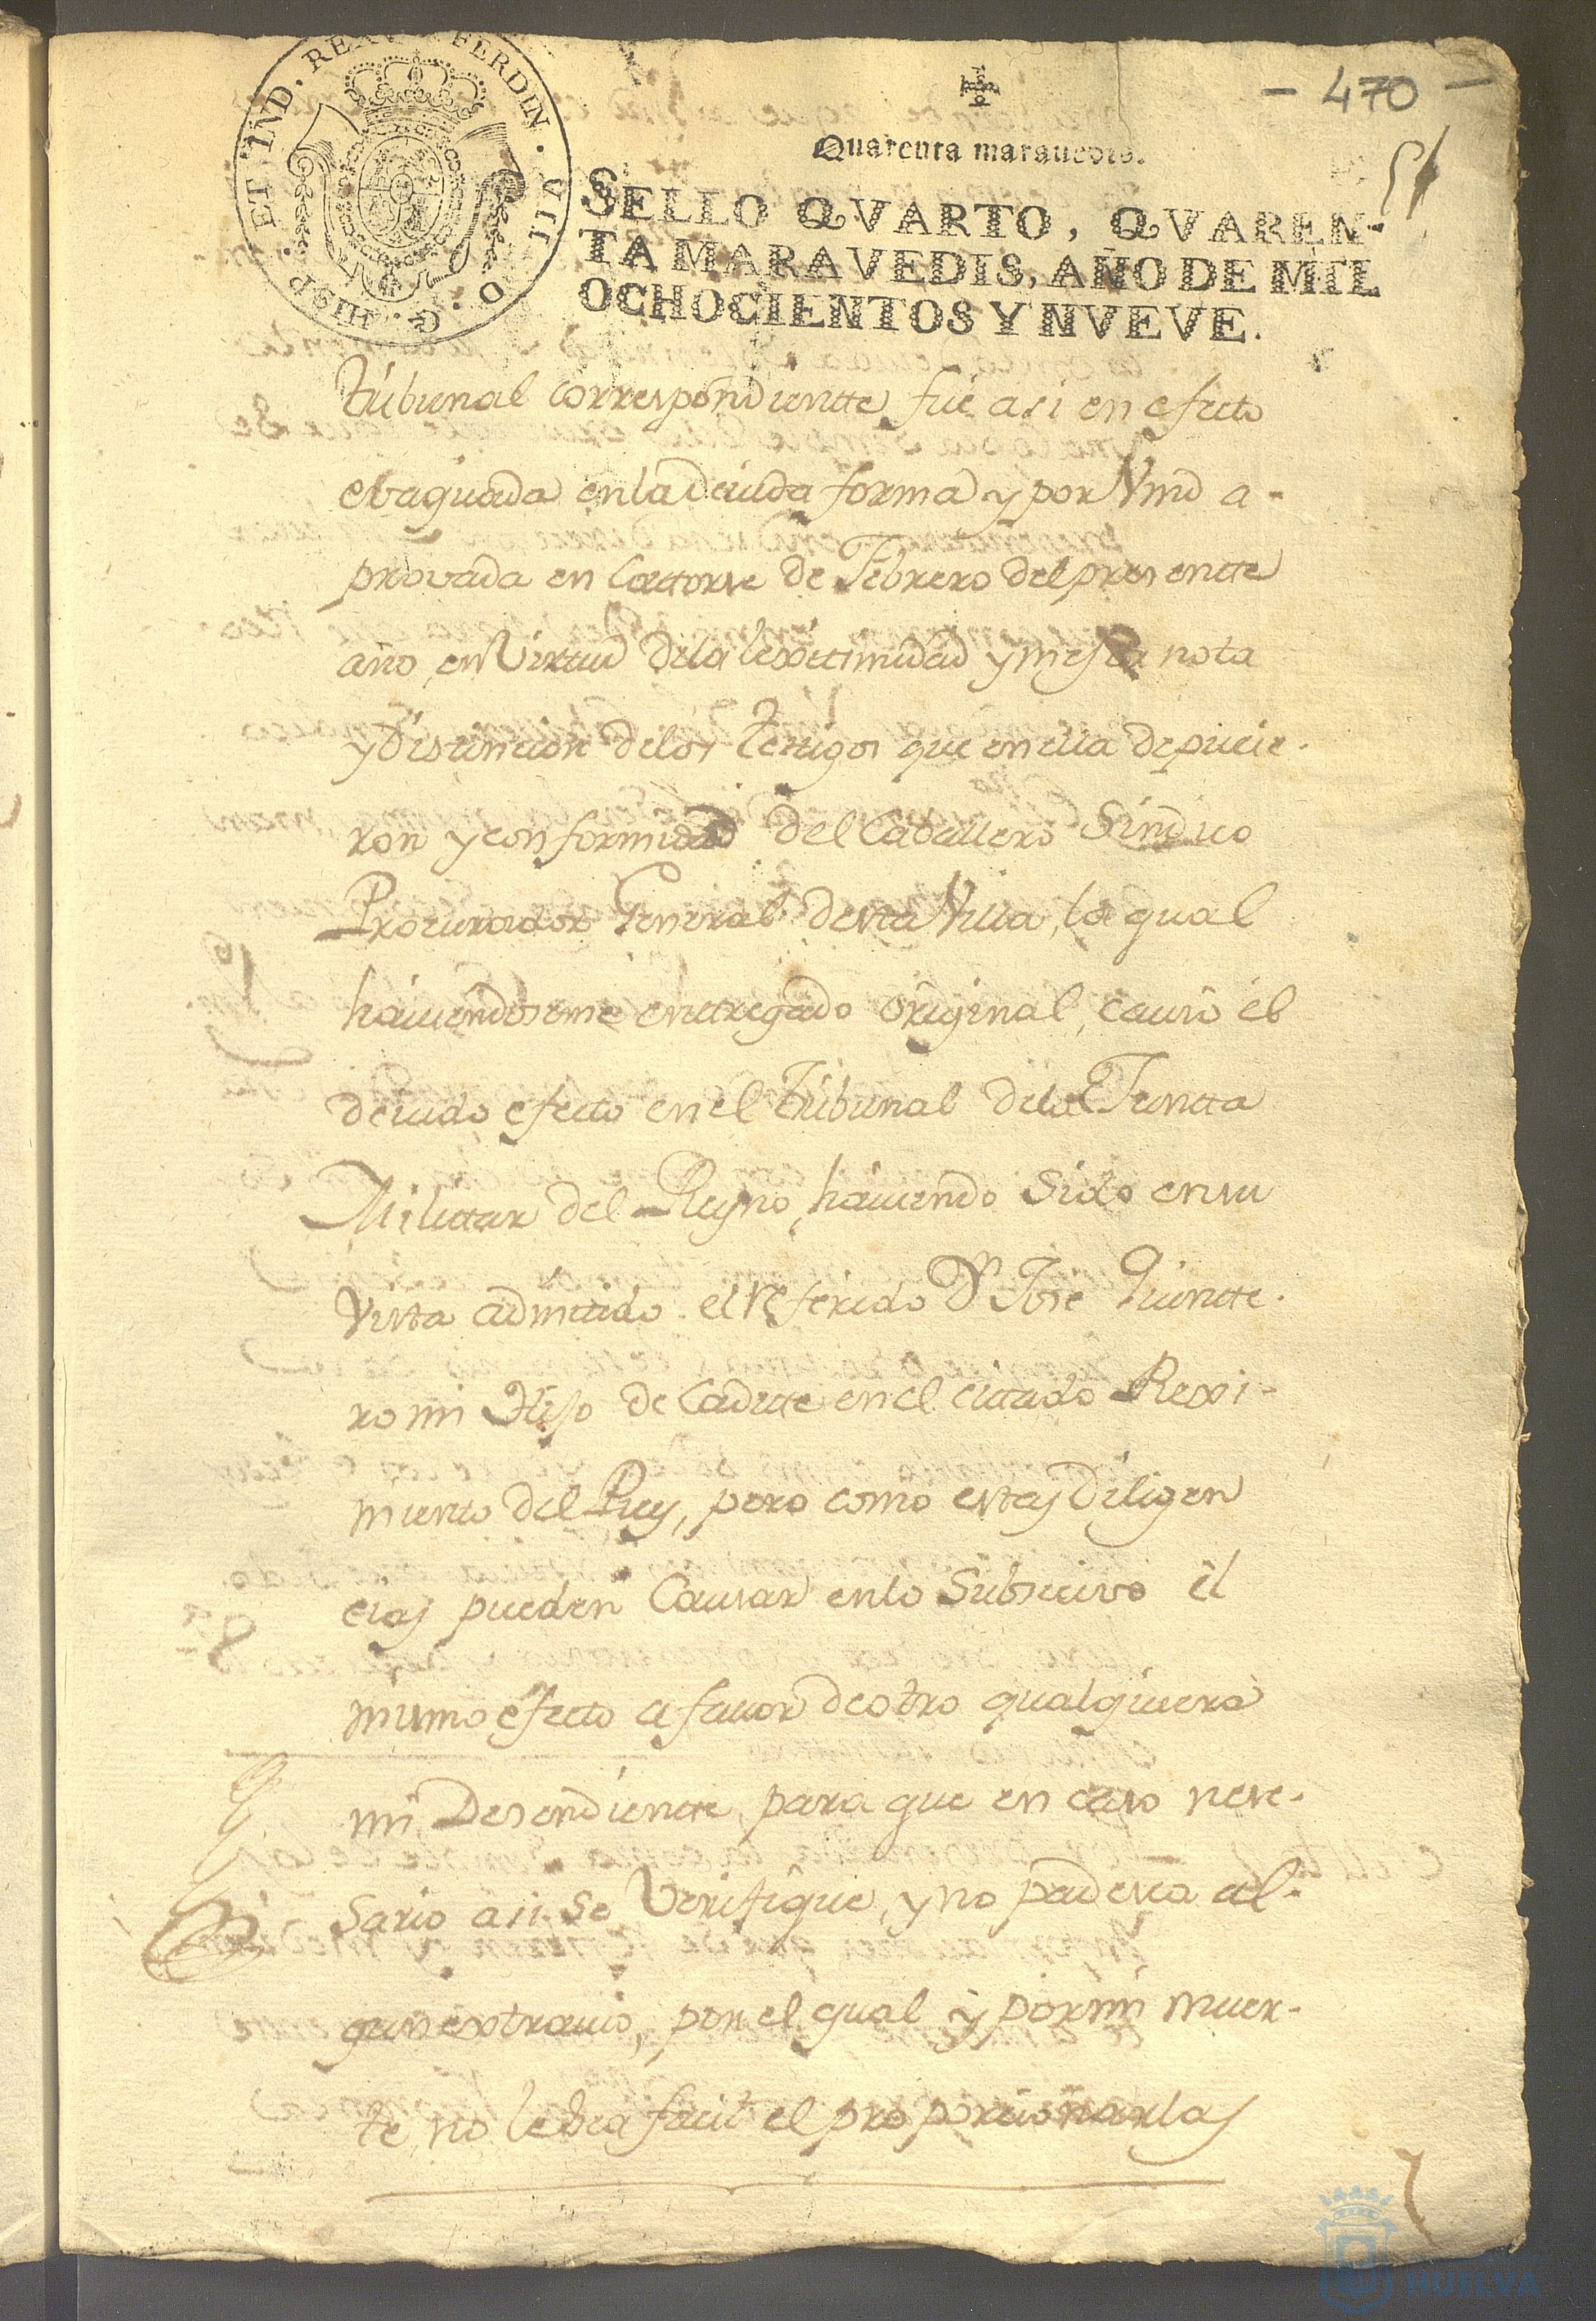 - 470 -
51
Quarenta maravedis.
HISP. ET IND. REX FERDIN. VII D. G.
SELLO QVARTO, QVAREN-
TA MARAVEDIS, AÑO DE MIL
OCHOCIENTOS Y NVEVE.
tribunal correspondientte, fue asi en efecto
ebaquada en la deuida forma y por Vmd a-
provada en Cattorse de Febrero del presentte
año, en Virtud de la lexitimidad y mejor nota
y Disuincion de los Testigos que en ella depucie-
ron y conformidad del Caballero Sindico
Procurador General desta Villa, la qual
hauiendoseme enttregado original, causó él
deuido efecto en el Tribunal de la Juntta
Milittar del Reyno, hauiendo Sido en su
Vista admitido el Referido Dn Jose Quintte-
ro mi Hijo de Cadete en el citado Rexi-
miento del Rey, pero como estas Diligen
cias pueden Causar en lo Subsecivo él
mismo efecto a fauor de otro qualquiera
mi Desendientte, para que en caso nese-
Sario asi se Verifique, y no padesca al-
gun extrauio, por el qual y por mi muer-
te, no le sea facil el proporcionarlas
HUELVA